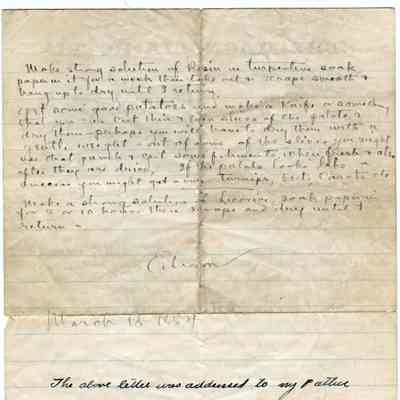 Make strong solution of Rosin in turpentine soak
paper in it for a week then take out & scrape smooth &
hang up to dry until I return.
Get some good potatoes and make a knife or something
that you can cut thin & even slices of the potato &
dry them perhaps you will have to dry them with a
gentle weight - out of some of the slices you might
use that punch & cut some filiments, when fresh & also
after they are dried. If the potato looks like
success you might get a few turnips, beets, Carrots etc
Make a strong solution of Licorice, soak paper in
for 8 or 10 hours then scrape and dry until I
return -
Edison
March 18 1884
The above letter was addressed to my Father